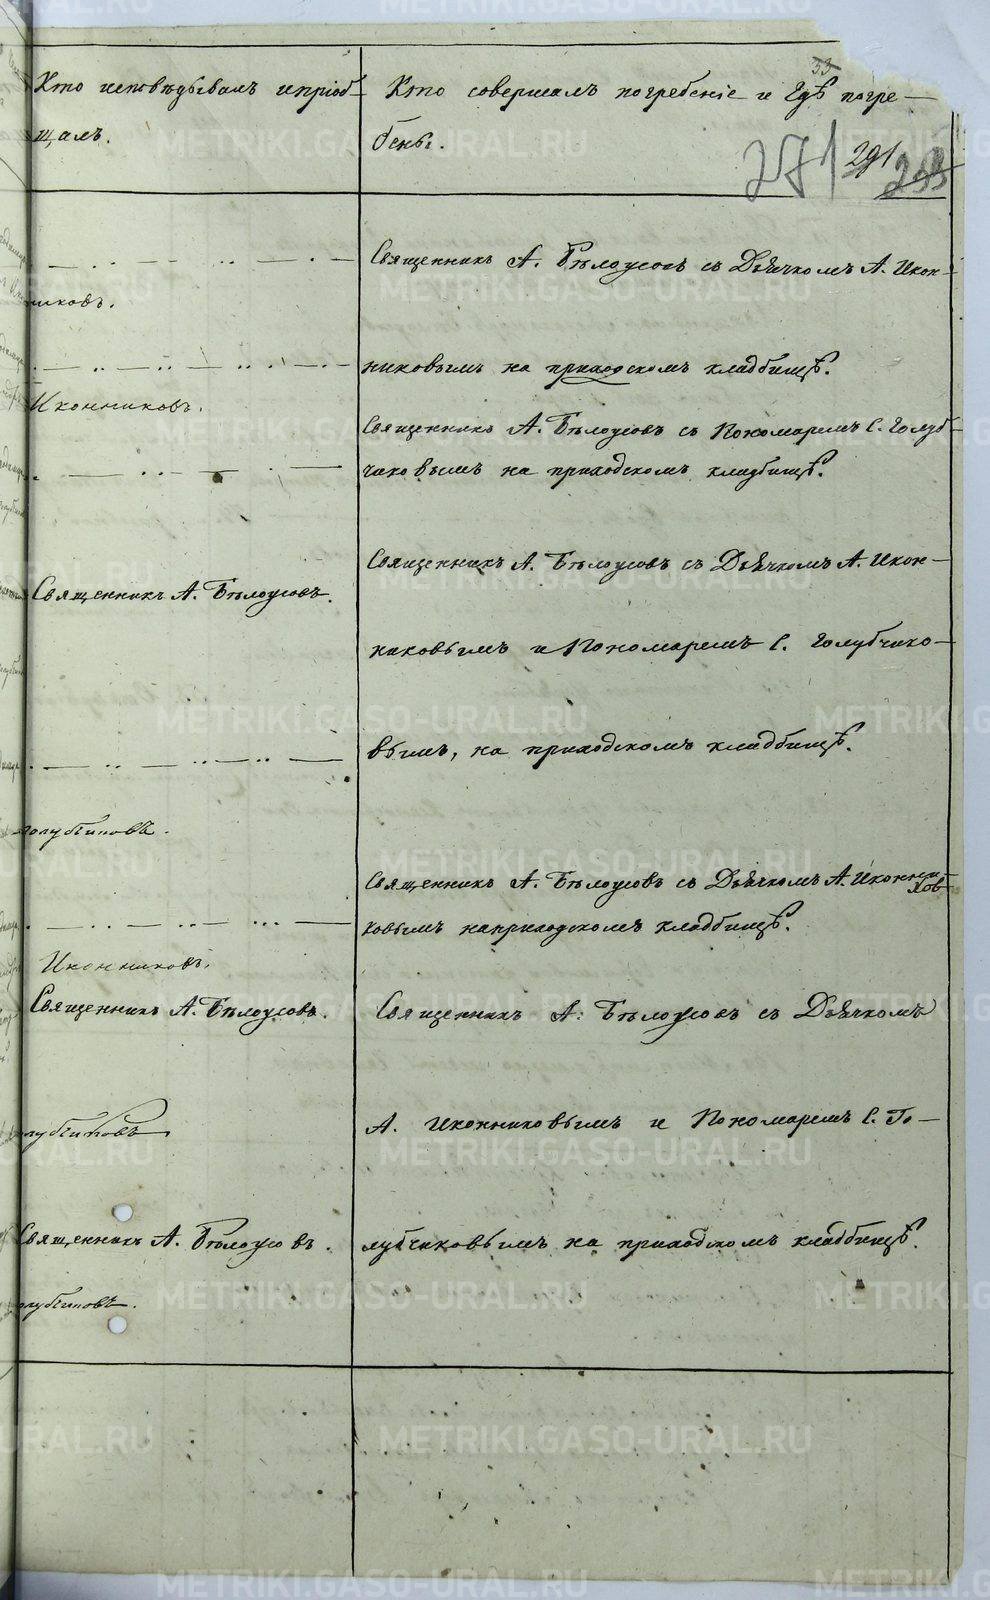 33
Кто исповѣдывалъ и пріоб-
щалъ.
Кто совершалъ погребеніе и Гдѣ погре-
бены.
271 291 253
Священникъ А. Бѣлоусовъ съ Дьячкомъ А. Икон-
никовъ.
никовымъ на приходскомъ кладбищѣ.
Иконниковъ.
Священникъ А. Бѣлоусовъ съ Пономаремъ С. Голуб-
чиковымъ на приходскомъ кладбищѣ.
Священникъ А. Бѣлоусовъ съ Дьячкомъ А. Икон-
Священникъ А. Бѣлоусовъ.
никовымъ и Пономаремъ С. Голубчико-
вымъ, на приходскомъ кладбищѣ.
Священникъ А. Бѣлоусовъ съ Дьячкомъ А. Иконни
ковымъ на приходскомъ кладбищѣ.
Иконниковъ.
Священникъ А. Бѣлоусовъ.
Священникъ А. Бѣлоусовъ съ Дьячкомъ
А. Иконниковымъ и Пономаремъ С. Го-
Священникъ А. Бѣлоусовъ.
лубчиковымъ на приходскомъ кладбищѣ.
METRIKI.GASO-URAL.RU